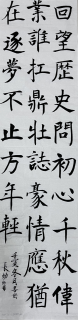 回望歷史問初心千秋偉
業誰扛鼎壯誌豪情應猶
在逐夢不止方年輕